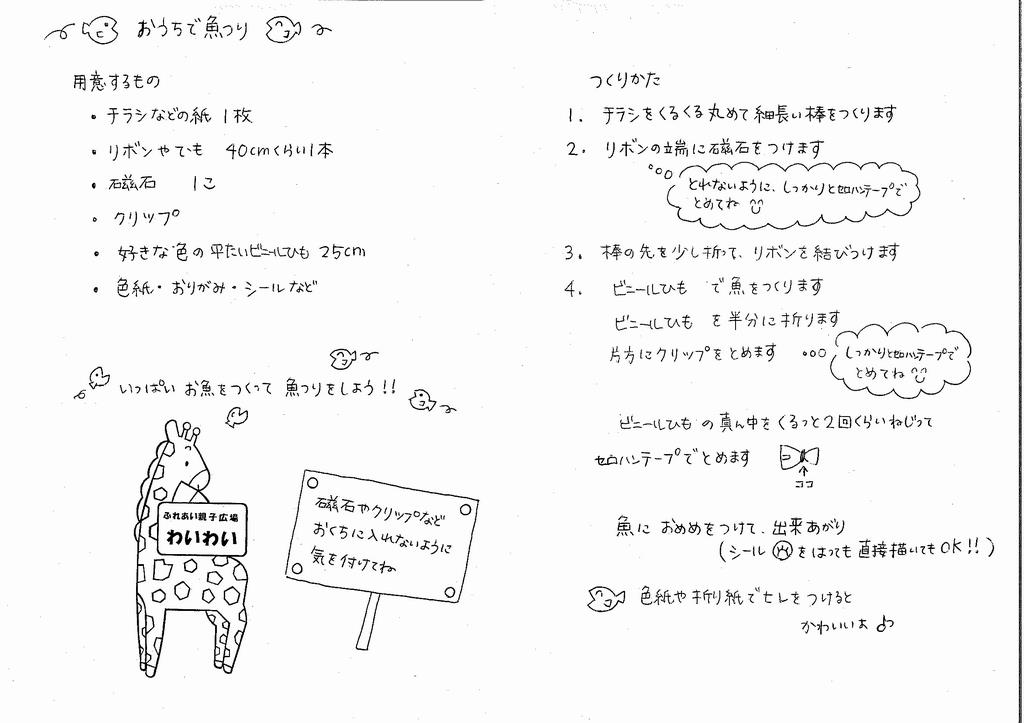 おうちで魚つり
用意するもの
・チラシなどの紙 1枚
・リボンやひも 40cmくらい1本
・磁石 1こ
・クリップ
・好きな色の平たいビニールひも 25cm
・色紙・おりがみ・シールなど
いっぱい お魚をつくって 魚つりをしよう!!
ふれあい親子広場
わいわい
磁石やクリップなど
おくちに入れないように
気を付けてね
つくりかた
1. チラシをくるくる丸めて細長い棒をつくります
2. リボンの端に磁石をつけます
とれないように、しっかりとセロハンテープで
とめてね
3. 棒の先を少し折って、リボンを結びつけます
4. ビニールひも で魚をつくります
ビニールひも を半分に折ります
片方にクリップをとめます
しっかりとセロハンテープで
とめてね
ビニールひも の真ん中をくるっと2回くらいねじって
セロハンテープでとめます
ココ
魚に おめめをつけて、出来あがり
(シール をはっても直接描いてもOK!!)
色紙や折り紙でヒレをつけると
かわいいよ♪